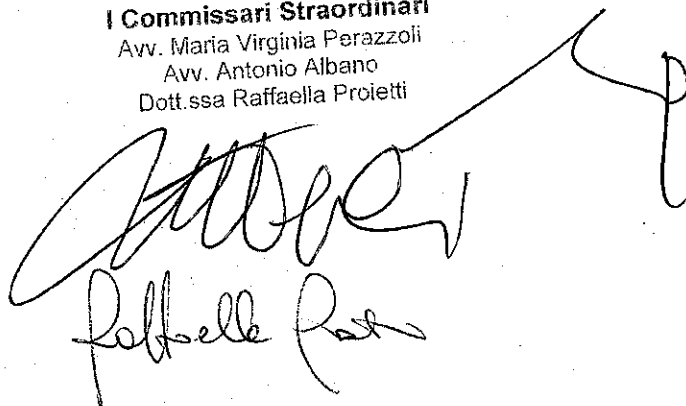 I Commissari Straordinari
Avv. Maria Virginia Perazzoli
Avv. Antonio Albano
Dott.ssa Raffaella Proietti
Raffaella